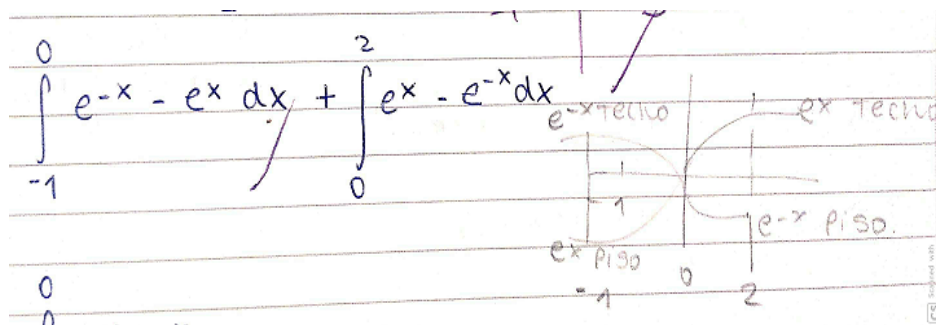 0 2
∫ e^-x - e^x dx + ∫ e^x - e^-x dx
-1 0
e^-x techo e^x techo
-1
e^-x piso.
e^x piso
-1 0 2
0